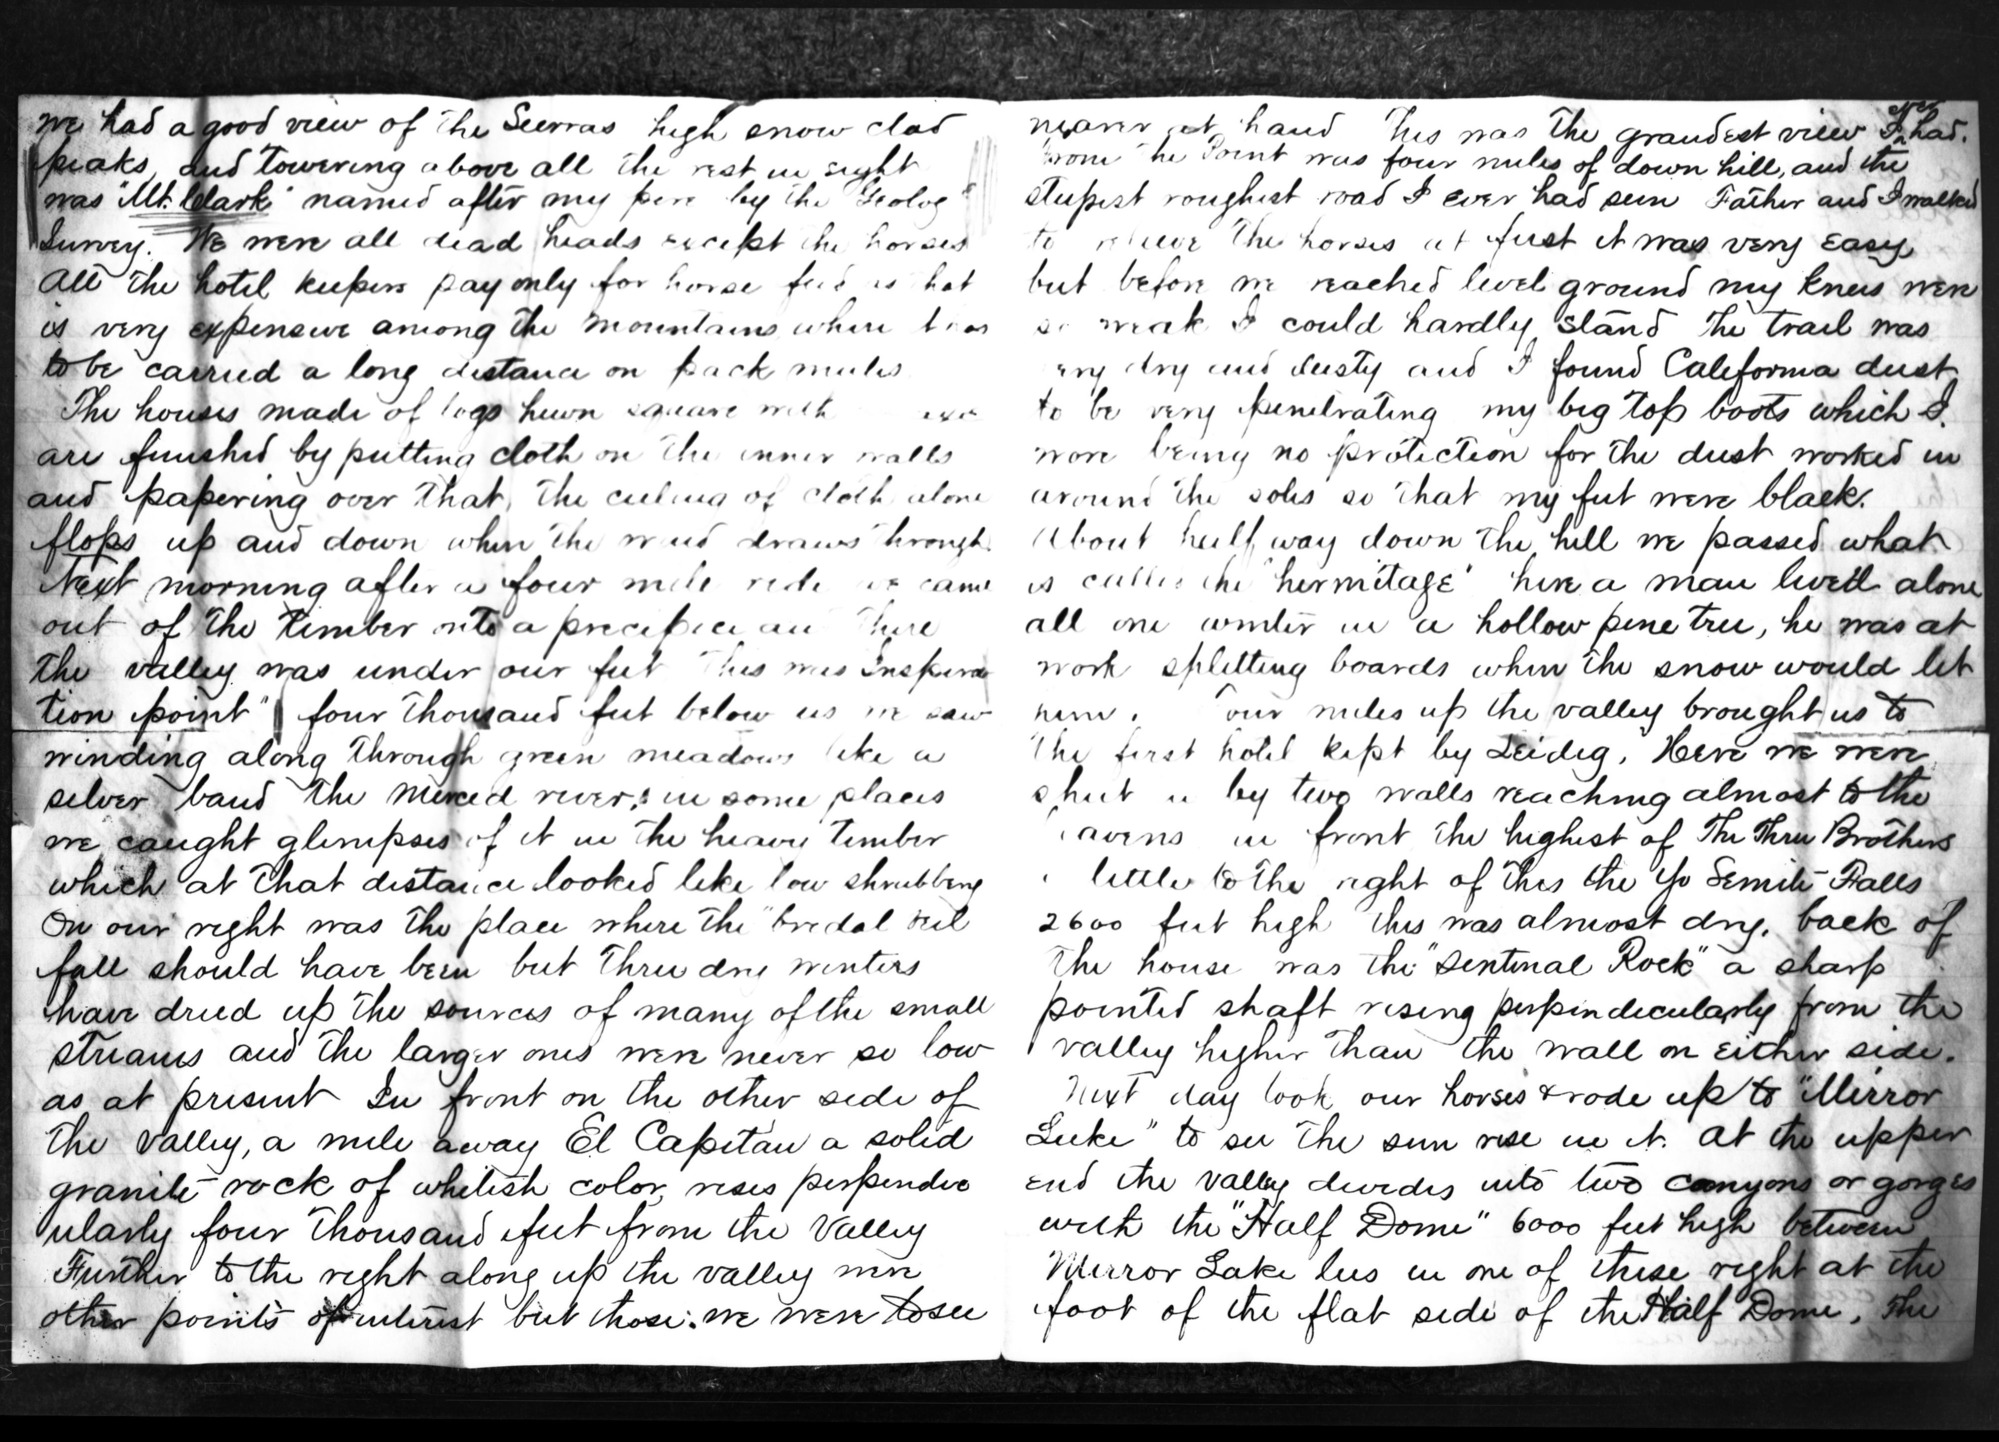 we had a good view of the Seerras high snow clad
peaks, and towering above all the rest in sight
was "Mt. Clark" named after my pere by the Geolog
Survey. We were all dead heads except the horses
All the hotel keepers pay only for horse feed as that
is very expensive among the mountains where it has
to be carried a long distance on pack mules
The houses made of logs hewn square with
are finished by putting cloth on the inner walls
and papering over that, the ceiling of cloth alone
flops up and down when the wind draws through.
Next morning after a four mile ride we came
out of the timber onto a precipice and there
the valley was under our feet This was Inspira
tion point" four thousand feet below us we saw
winding along through green meadows like a
silver band the Merced river, in some places
we caught glimpses of it in the heavy timber
which at that distance looked like low shrubbery
On our right was the place where the "bridal veil
fall should have been but three dry winters
have dried up the sources of many of the small
streams and the larger ones were never so low
as at present In front on the other side of
the valley, a mile away El Capitan a solid
granite rock of whitish color, rises perpendic
ularly four thousand feet from the Valley
Further to the right along up the valley were
other points of interest but those we were to see
nearer at hand This was the grandest view I had.
From the Point was four miles of down hill, and the
steepest roughest road I ever had seen Father and I walked
to releive the horses at first it was very easy
but before we reached level ground my knees were
so weak I could hardly stand The trail was
very dry and dusty and I found California dust
to be very penetrating my big top boots which I
wore being no protection for the dust worked in
around the soles so that my feet were black.
About half way down the hill we passed what
is called the "hermitage" here a man lived alone
all one winter in a hollow pine tree, he was at
work splitting boards when the snow would let
him. Four miles up the valley brought us to
the first hotel kept by Leidig, Here we were
shut in by two walls reaching almost to the
heavens in front the highest of The Three Brothers
a little to the right of this the Yo Semite Falls
2600 feet high this was almost dry, back of
the house was the "Sentinal Rock" a sharp
pointed shaft rising perpindecularly from the
valley higher than the wall on either side.
Next day took our horses & rode up to "Mirror
Lake" to see the sun rise in it. At the upper
end the valley divides into two canyons or gorges
with the "Half Dome" 6000 feet high between
Mirror Lake lies in one of these right at the
foot of the flat side of the Half Dome, The